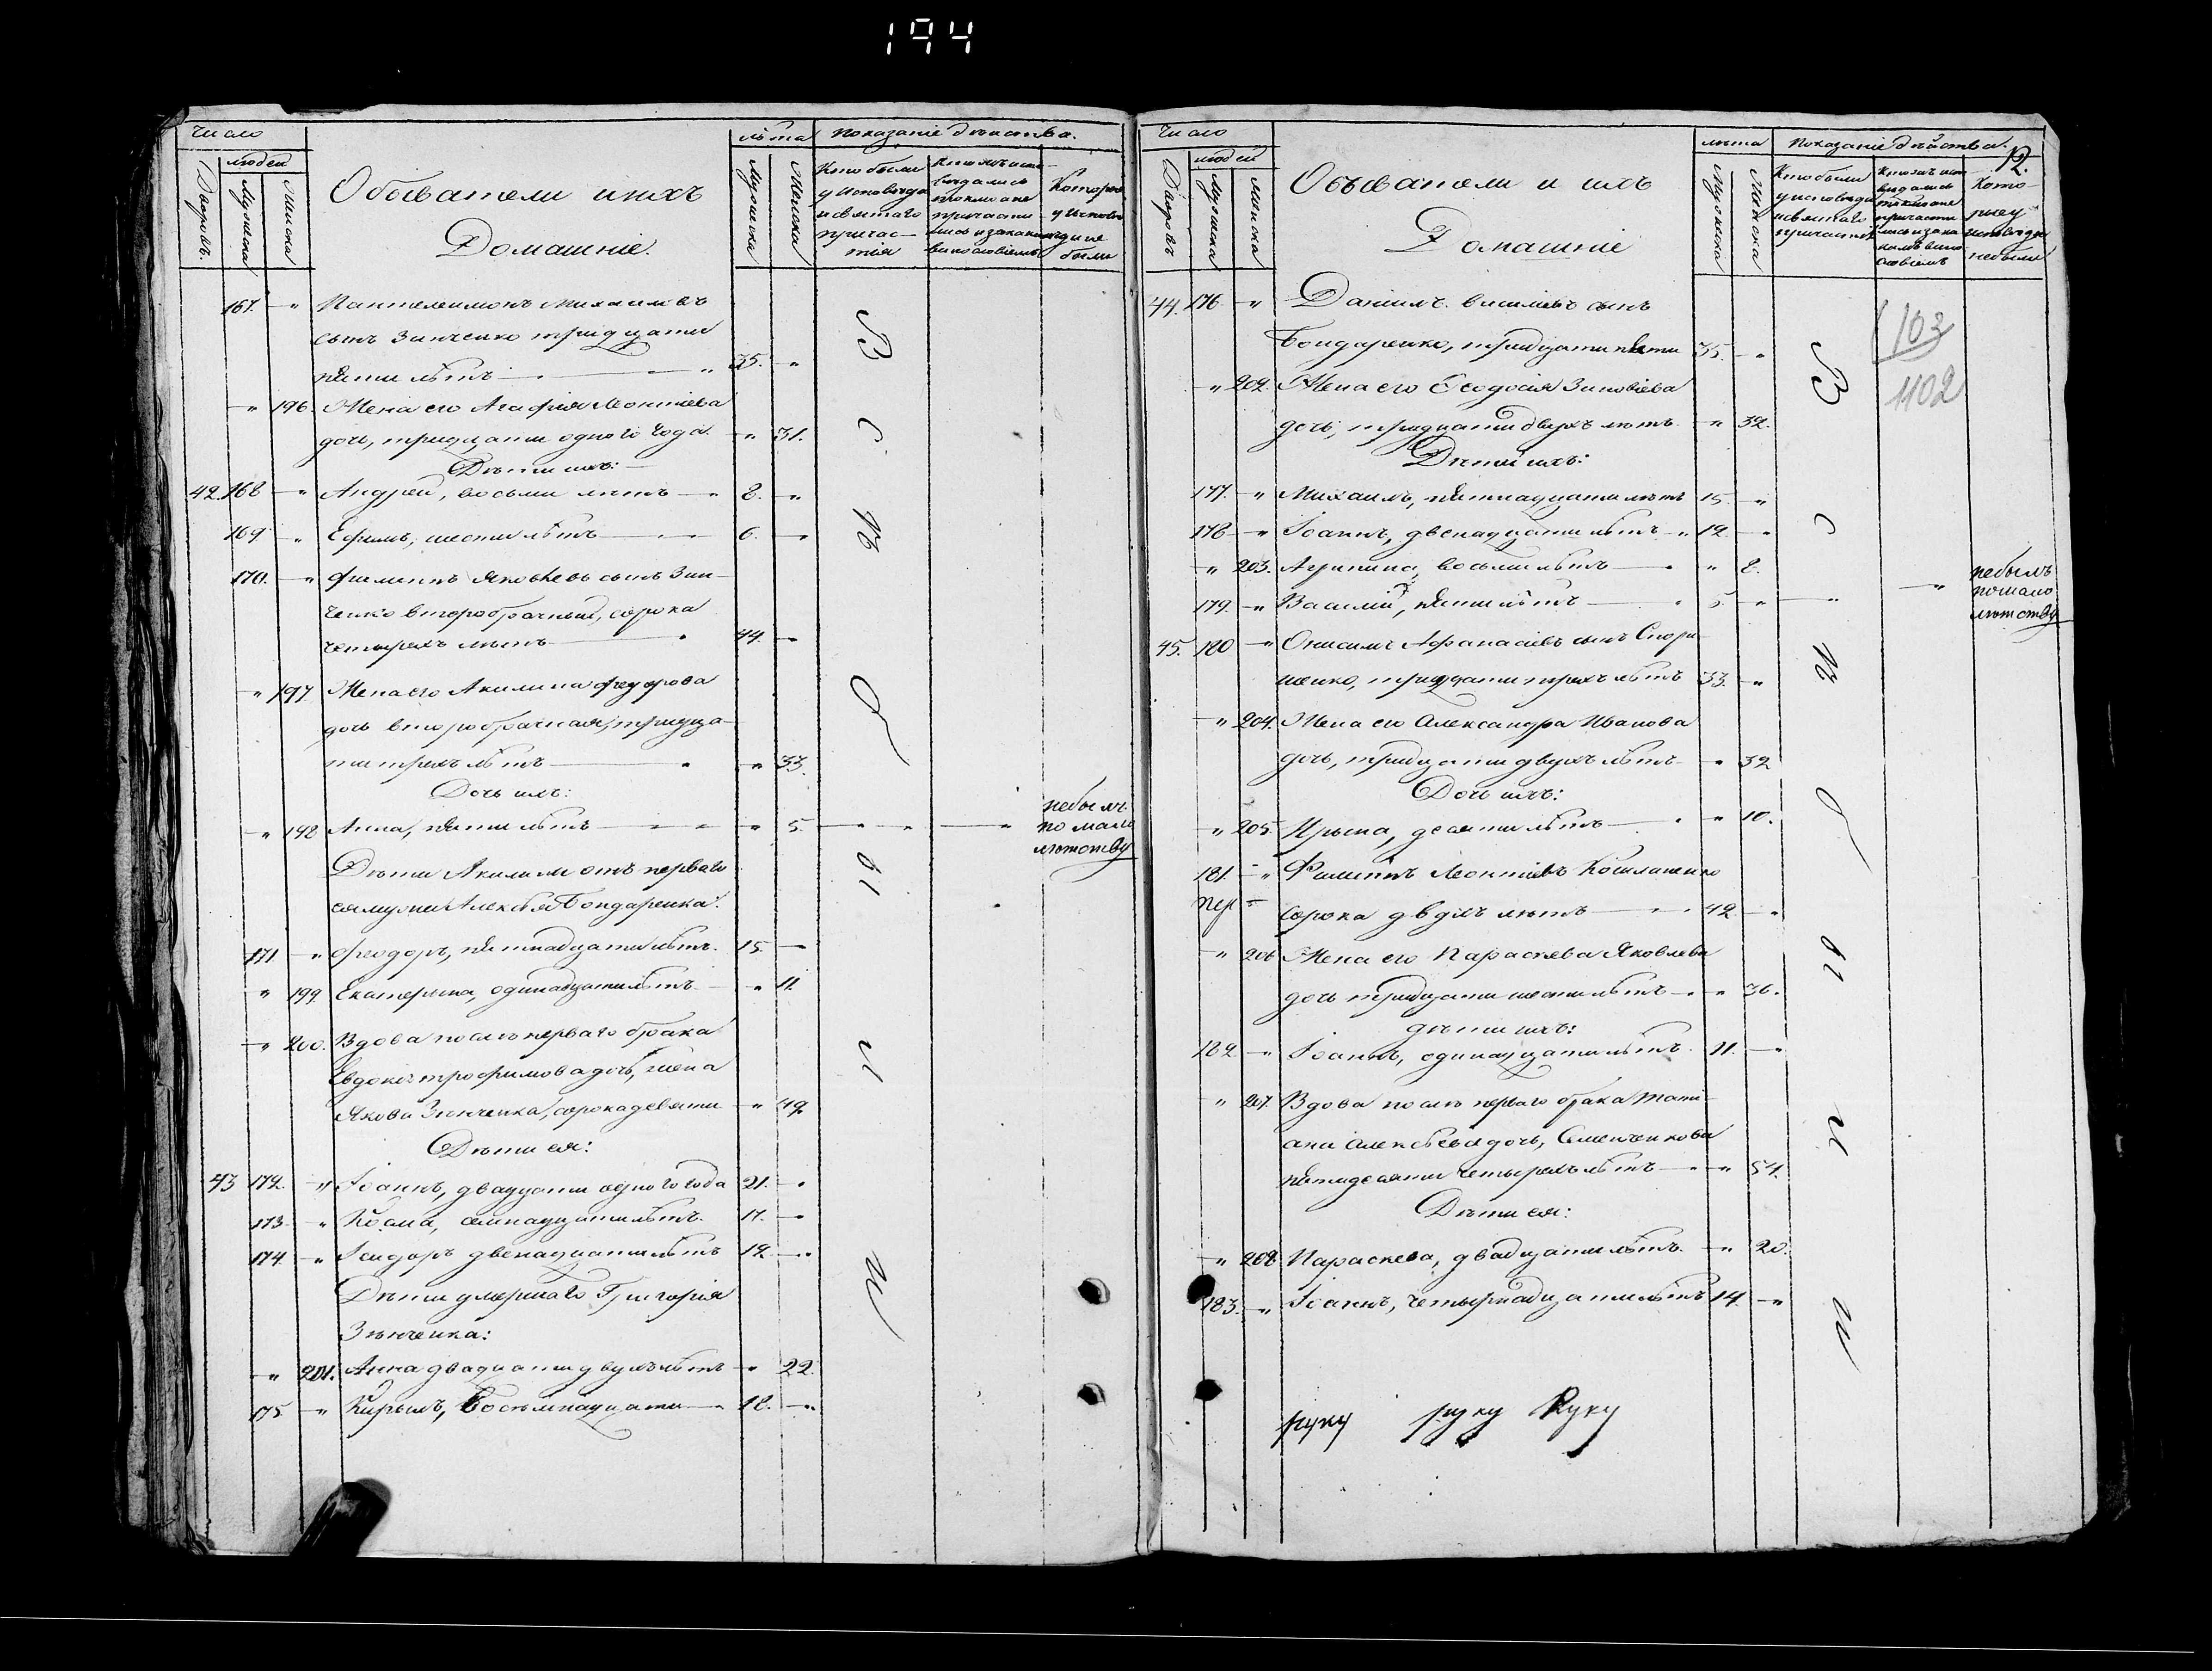 194
Число
людей
Дворовъ.
Мужеска
Женска
Обыватели ихъ
Домашніе.
лѣта
Мужеска
Женска
Показаніе дѣйства.
Кто были
у Исповѣди
и святаго
причас-
тія
вѣдались
токмо а не
причасти
лись и за каким
винословіемъ
Которые
у исповѣ
ди не
были
167. " Пантелеимонъ Михаиловъ
сынъ Зинченко тридцати
пяти лѣтъ " 35. "
" 196. Жена его Агафія Леонтіева
дочь, тридцати одного года. " 31.
Дѣти ихъ:
42. 168 " Андрей, восьми лѣтъ " 8. "
169 " Ефимъ, шести лѣтъ 6.
170. " Филиппъ Яковлевъ сынъ Зин-
ченко второбрачный, сорока
четырехъ лѣтъ 44.
" 197 Жена его Акилина Федорова
дочь второбрачная, тридца-
ти трехъ лѣтъ " 33.
Дочь ихъ:
" 198 Анна, пяти лѣтъ " 5. " небылъ
по мало
лѣтству
Дѣти Акилины отъ перваго
ея мужа Алексѣя Бондаренка.
171 " Феодоръ, пятнадцати лѣтъ. 15.
" 199. Екатерина, одинадцати лѣтъ " 11.
" 200. Вдова послѣ перваго брака
Евдокія Трофимова дочь, жена
Якова Зинченка, сорока девяти " 49.
Дѣти ея:
43 172. " Іоаннъ, двадцати одного года 21.
173. " Косма, семнадцати лѣтъ. 17.
174. " Исидоръ двенадцати лѣтъ 12.
Дѣти умершаго Григорія
Зинченка:
" 201. Анна двадцати двухъ лѣтъ " 22.
175 " Кирылъ, Восѣмнадцати 18.
В
с
ѣ
б
ы
л
и
Число
людей
Дворовъ
Мужеска
Женска
Обыватели и ихъ
Домашніе
лѣта
Мужеска
Женска
Показаніе дѣйства.
12.
Кто были
у исповѣди
и святаго
причастія
вѣдались
токмо а не
причасти
лись и за ка
кимъ вино
словіемъ
Кото-
рые у
исповѣди
небыли
103
1102
44. 176. " Даніилъ Василіевъ сынъ
Бондаренко, тридцати пяти 35. "
" 202. Жена его Ѳеодосія Зиновіева
дочь, тридцати двухъ лѣтъ " 32.
Дѣти ихъ:
177. " Михаилъ, пятнадцати лѣтъ 15 "
178 " Іоаннъ, двенадцати лѣтъ " 12.
" 203. Агрипина, восьми лѣтъ " 8.
179. " Василій, пяти лѣтъ 5. " небылъ
помало
лѣтству
45. 180 " Онисимъ Афанасіевъ сынъ Спори
шенко, тридцати трехъ лѣтъ 33. "
" 204. Жена его Александра Иванова
дочь, тридцати двухъ лѣтъ " 32
Дочь ихъ:
" 205. Ирына, десяти лѣтъ " 10.
181. " Филиппъ Леонтіевъ
сорока двухъ лѣтъ 42 "
" 206 Жена его Параскева Яковлева
дочь тридцати шести лѣтъ " 36.
дѣти ихъ:
182. " Іоаннъ, одинадцати лѣтъ. 11. "
" 207. Вдова послѣ перваго брака Тати-
ана Алексѣева дочь, Семенченкова
пятидесяти четырехъ лѣтъ " 54.
Дѣти ея:
" 208 Параскева, двадцати лѣтъ. " 20.
183. " Іоаннъ, четырнадцати лѣтъ 14. "
В
с
ѣ
б
ы
л
и
руку руку Руку